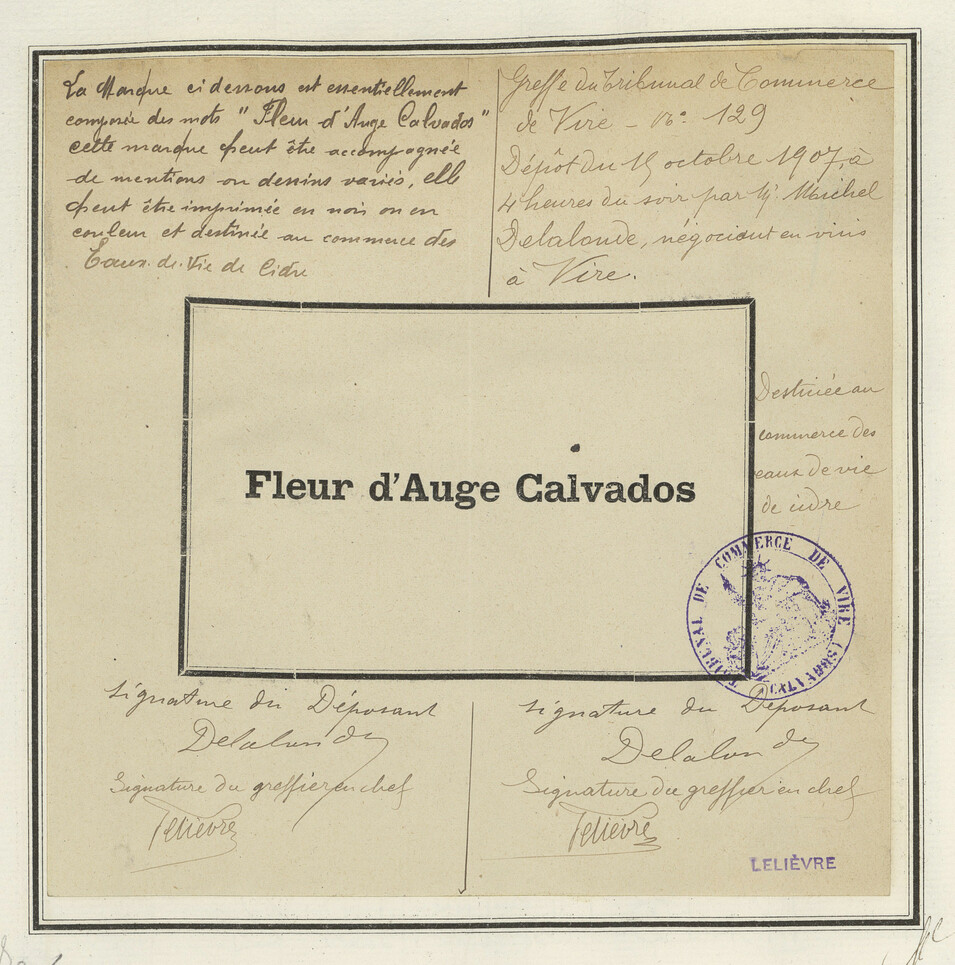 La Marque ci dessous est essentiellement
composée des mots "Fleur d'Auge Calvados"
cette marque peut être accompagnée
de mentions ou dessins variés, elle
peut être imprimée en noir ou en
couleur et destinée au commerce des
Eaux-de-Vie de Cidre
Greffe du Tribunal de Commerce
de Vire - No. 129
Dépôt du 15 octobre 1907, à
4 heures du soir par Mr. Michel
Delalande, négociant en vins
à Vire.
Destinée au
commerce des
eaux de vie
de cidre
Fleur d'Auge Calvados
TRIBUNAL DE COMMERCE DE VIRE (CALVADOS)
Signature du Déposant
Delalande
Signature du greffier en chef
Lelièvre
Signature du Déposant
Delalande
Signature du greffier en chef
Lelièvre
LELIÈVRE